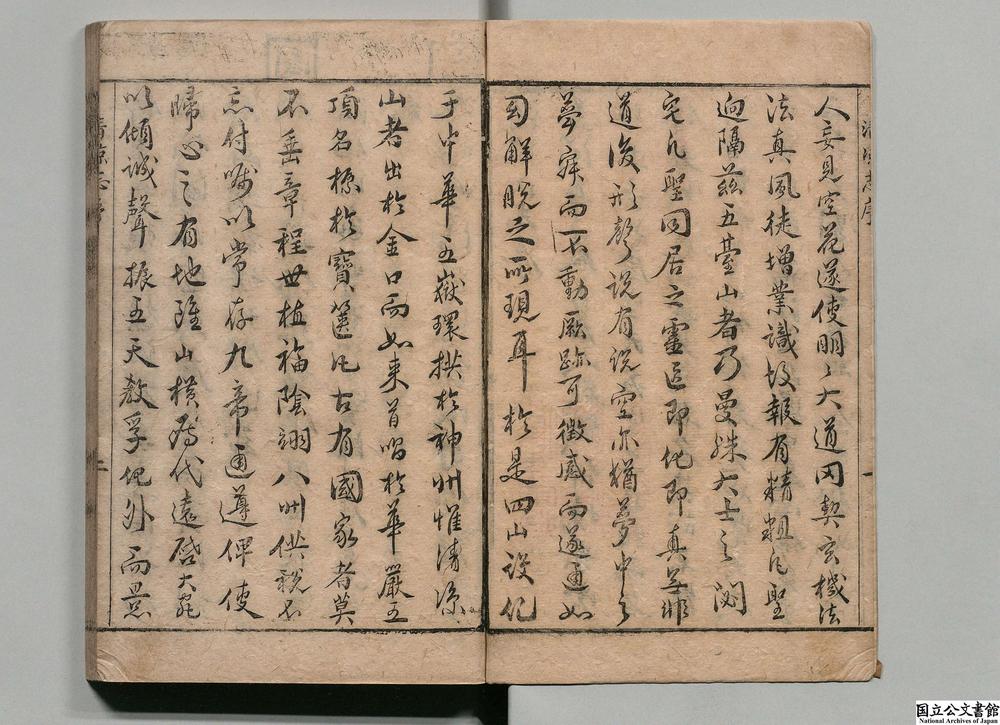 人妄見空花遂使明〻大道罔契玄機法
法真風徒增業識故報有精粗凡聖
迥隔茲五臺山者乃曼殊大士之閟
宅凡聖同居之靈區即化即真無非
道後形聲說有說空亦猶夢中之
夢寐而不動厥跡可徵感而遂通如
司解脫之所現耳於是四山設化
于中華五嶽環拱於神州惟清涼
山者出於金口而如來首唱於華嚴五
頂名標於寶篋凡古有國家者莫
不垂章程世植福陰翊八州供稅不
忘付囑以常存九帝通遵俾使
歸心之有地雖山橫代遠啓大
以傾誠聲振五天教孚化外而
清涼志序
一
二
国立公文書館
National Archives of Japan